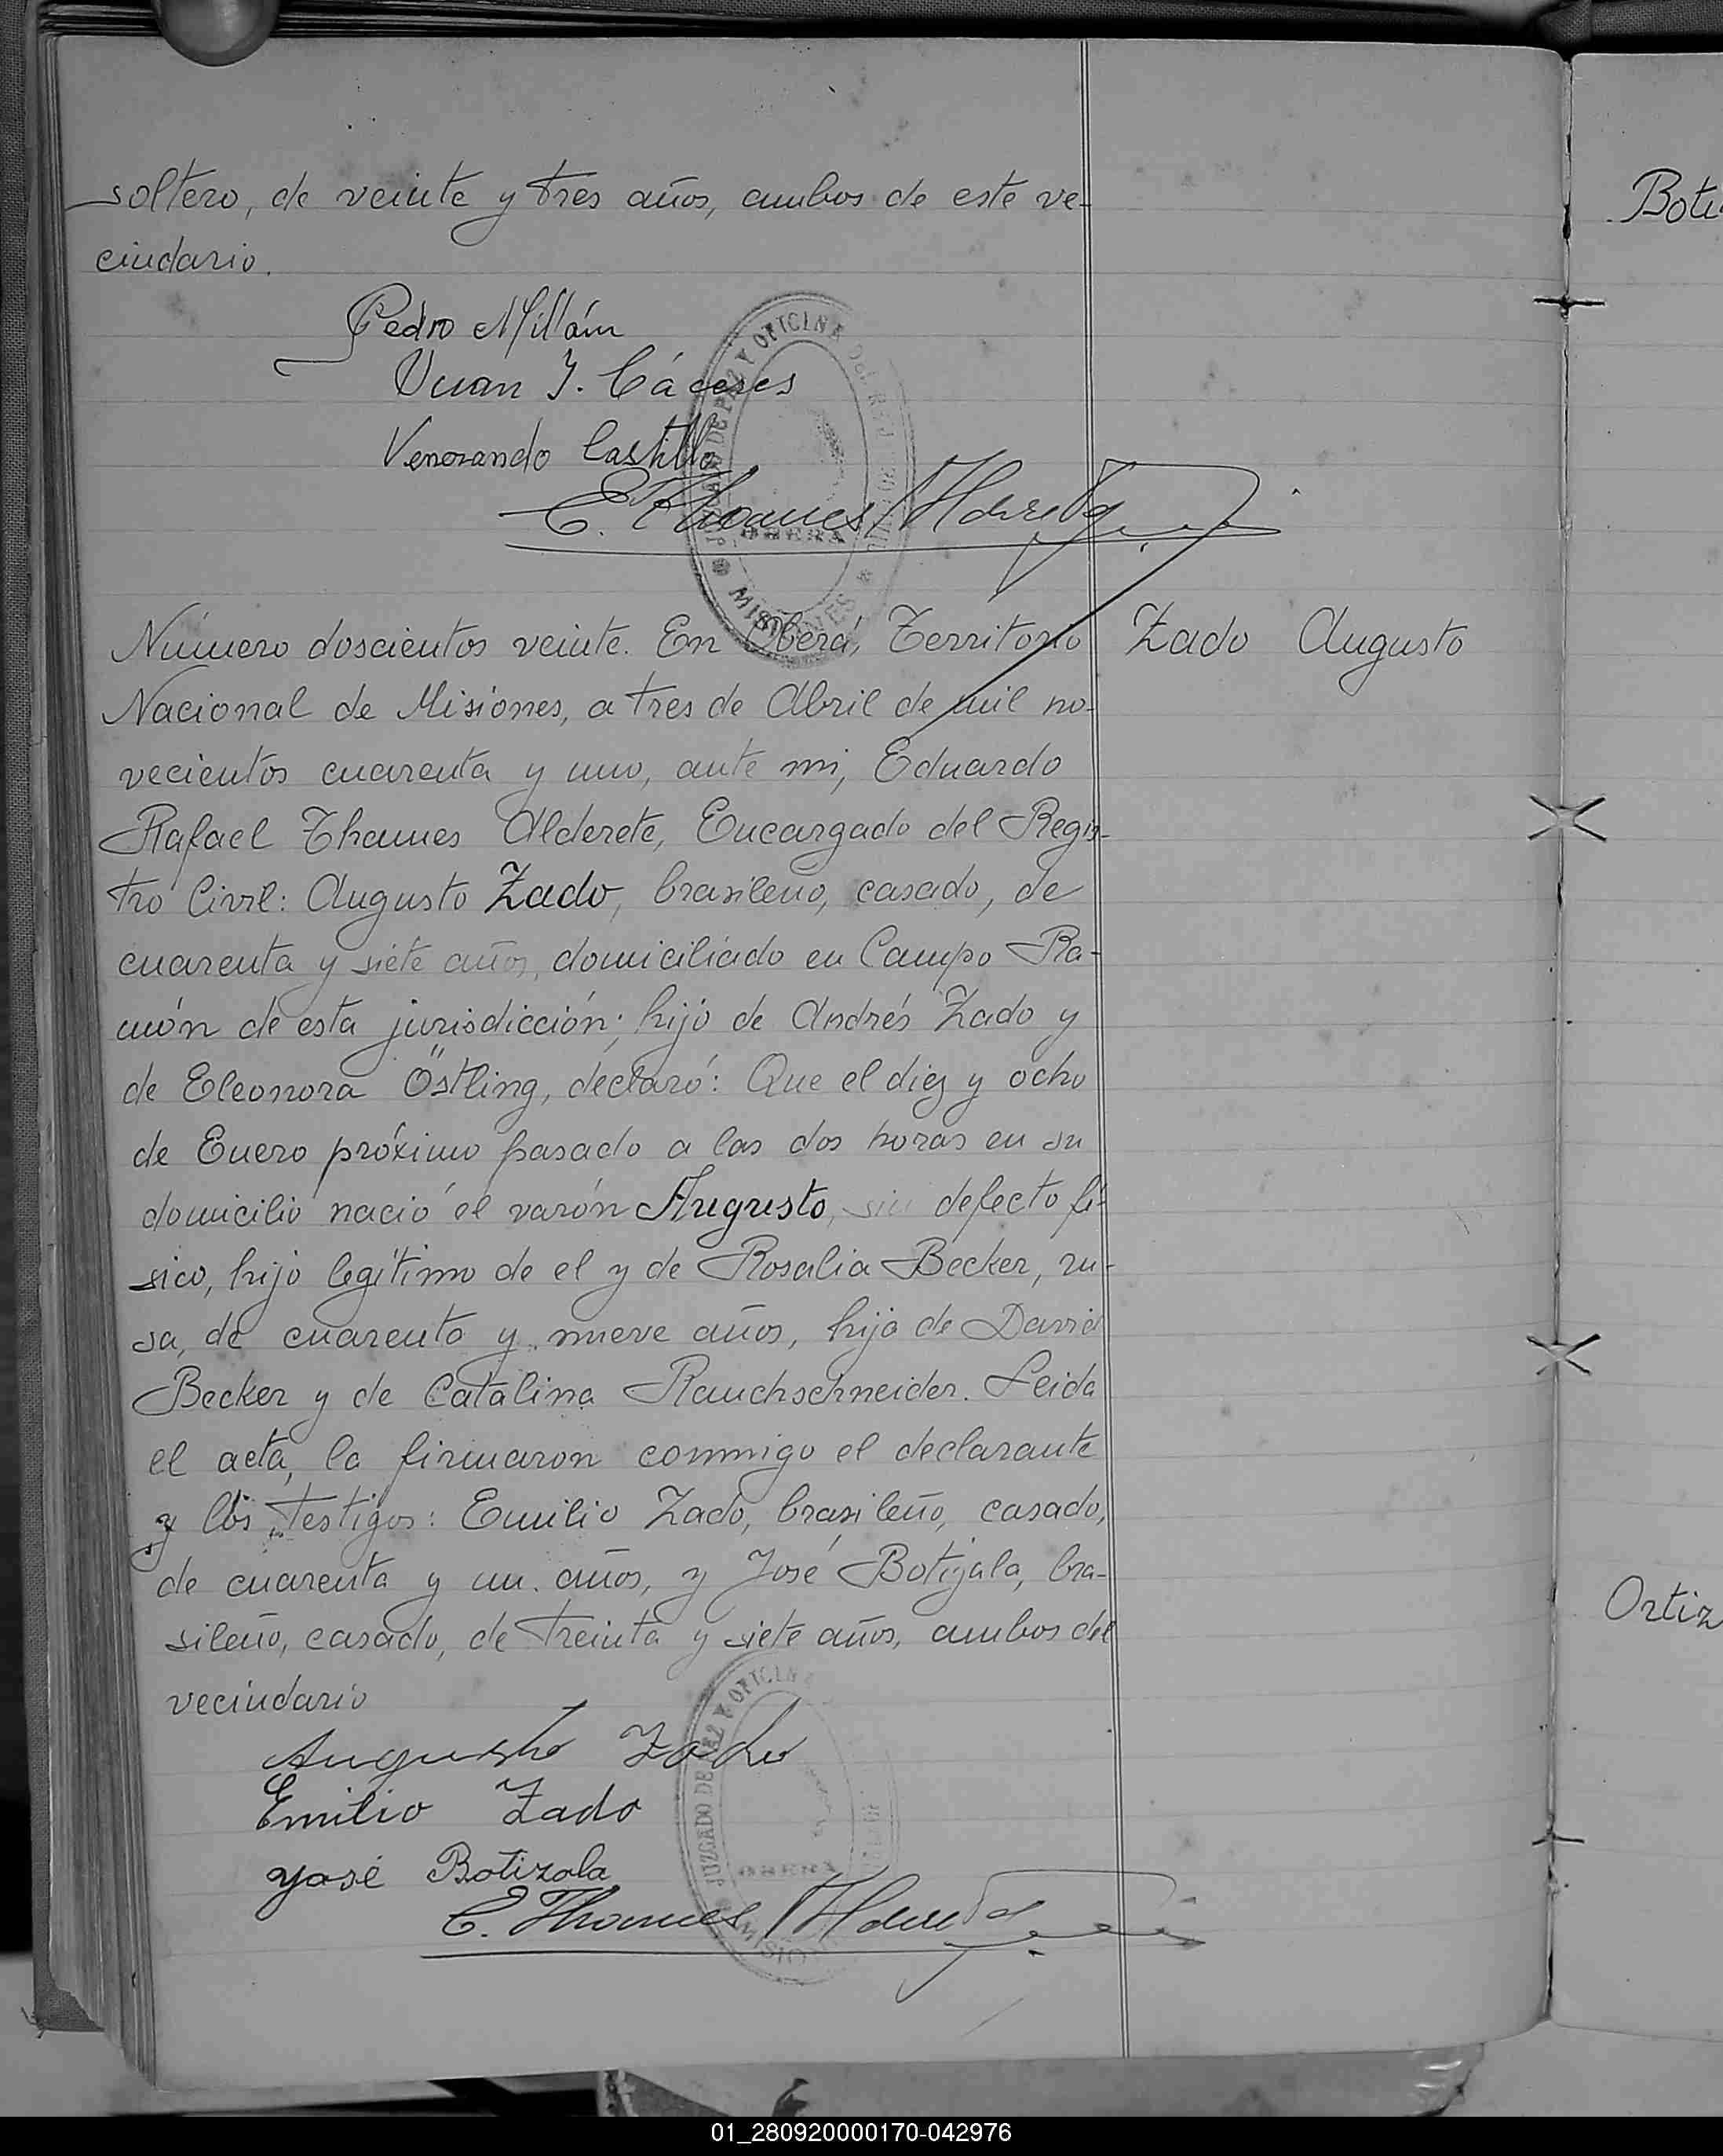 soltero, de veinte y tres años, ambos de este ve-
cindario.
Pedro Millán
Juan J. Cáceres
Venerando Castillo
E. Thames Alderete
JUZGADO DE PAZ Y OFICINA DEL REGISTRO CIVIL
OBERA
MISIONES
Número doscientos veinte. En Oberá, Territorio
Zado Augusto
Nacional de Misiones, a tres de Abril de mil no-
vecientos cuarenta y uno, ante mi, Eduardo
Rafael Thames Alderete, Encargado del Regis-
tro Civil: Augusto Zado, brasileño, casado, de
cuarenta y siete años, domiciliado en Campo Ra-
món de esta jurisdicción; hijo de Andrés Zado y
de Eleonora Östling, declaró: Que el diez y ocho
de Enero próximo pasado a las dos horas en su
domicilio nació el varón Augusto, sin defecto fí-
sico, hijo legítimo de el y de Rosalia Becker, ru-
sa, de cuarenta y nueve años, hija de David
Becker y de Catalina Rauchschneider. Leida
el acta, la firmaron conmigo el declarante
y los testigos: Emilio Zado, brasileño, casado,
de cuarenta y un años, y José Botizala, bra-
sileño, casado, de treinta y siete años, ambos del
vecindario
Augusto Zado
Emilio Zado
José Botizola
E. Thames Alderete
JUZGADO DE PAZ Y OFICINA
OBERA
MISIONES
Ortiz
01_280920000170-042976